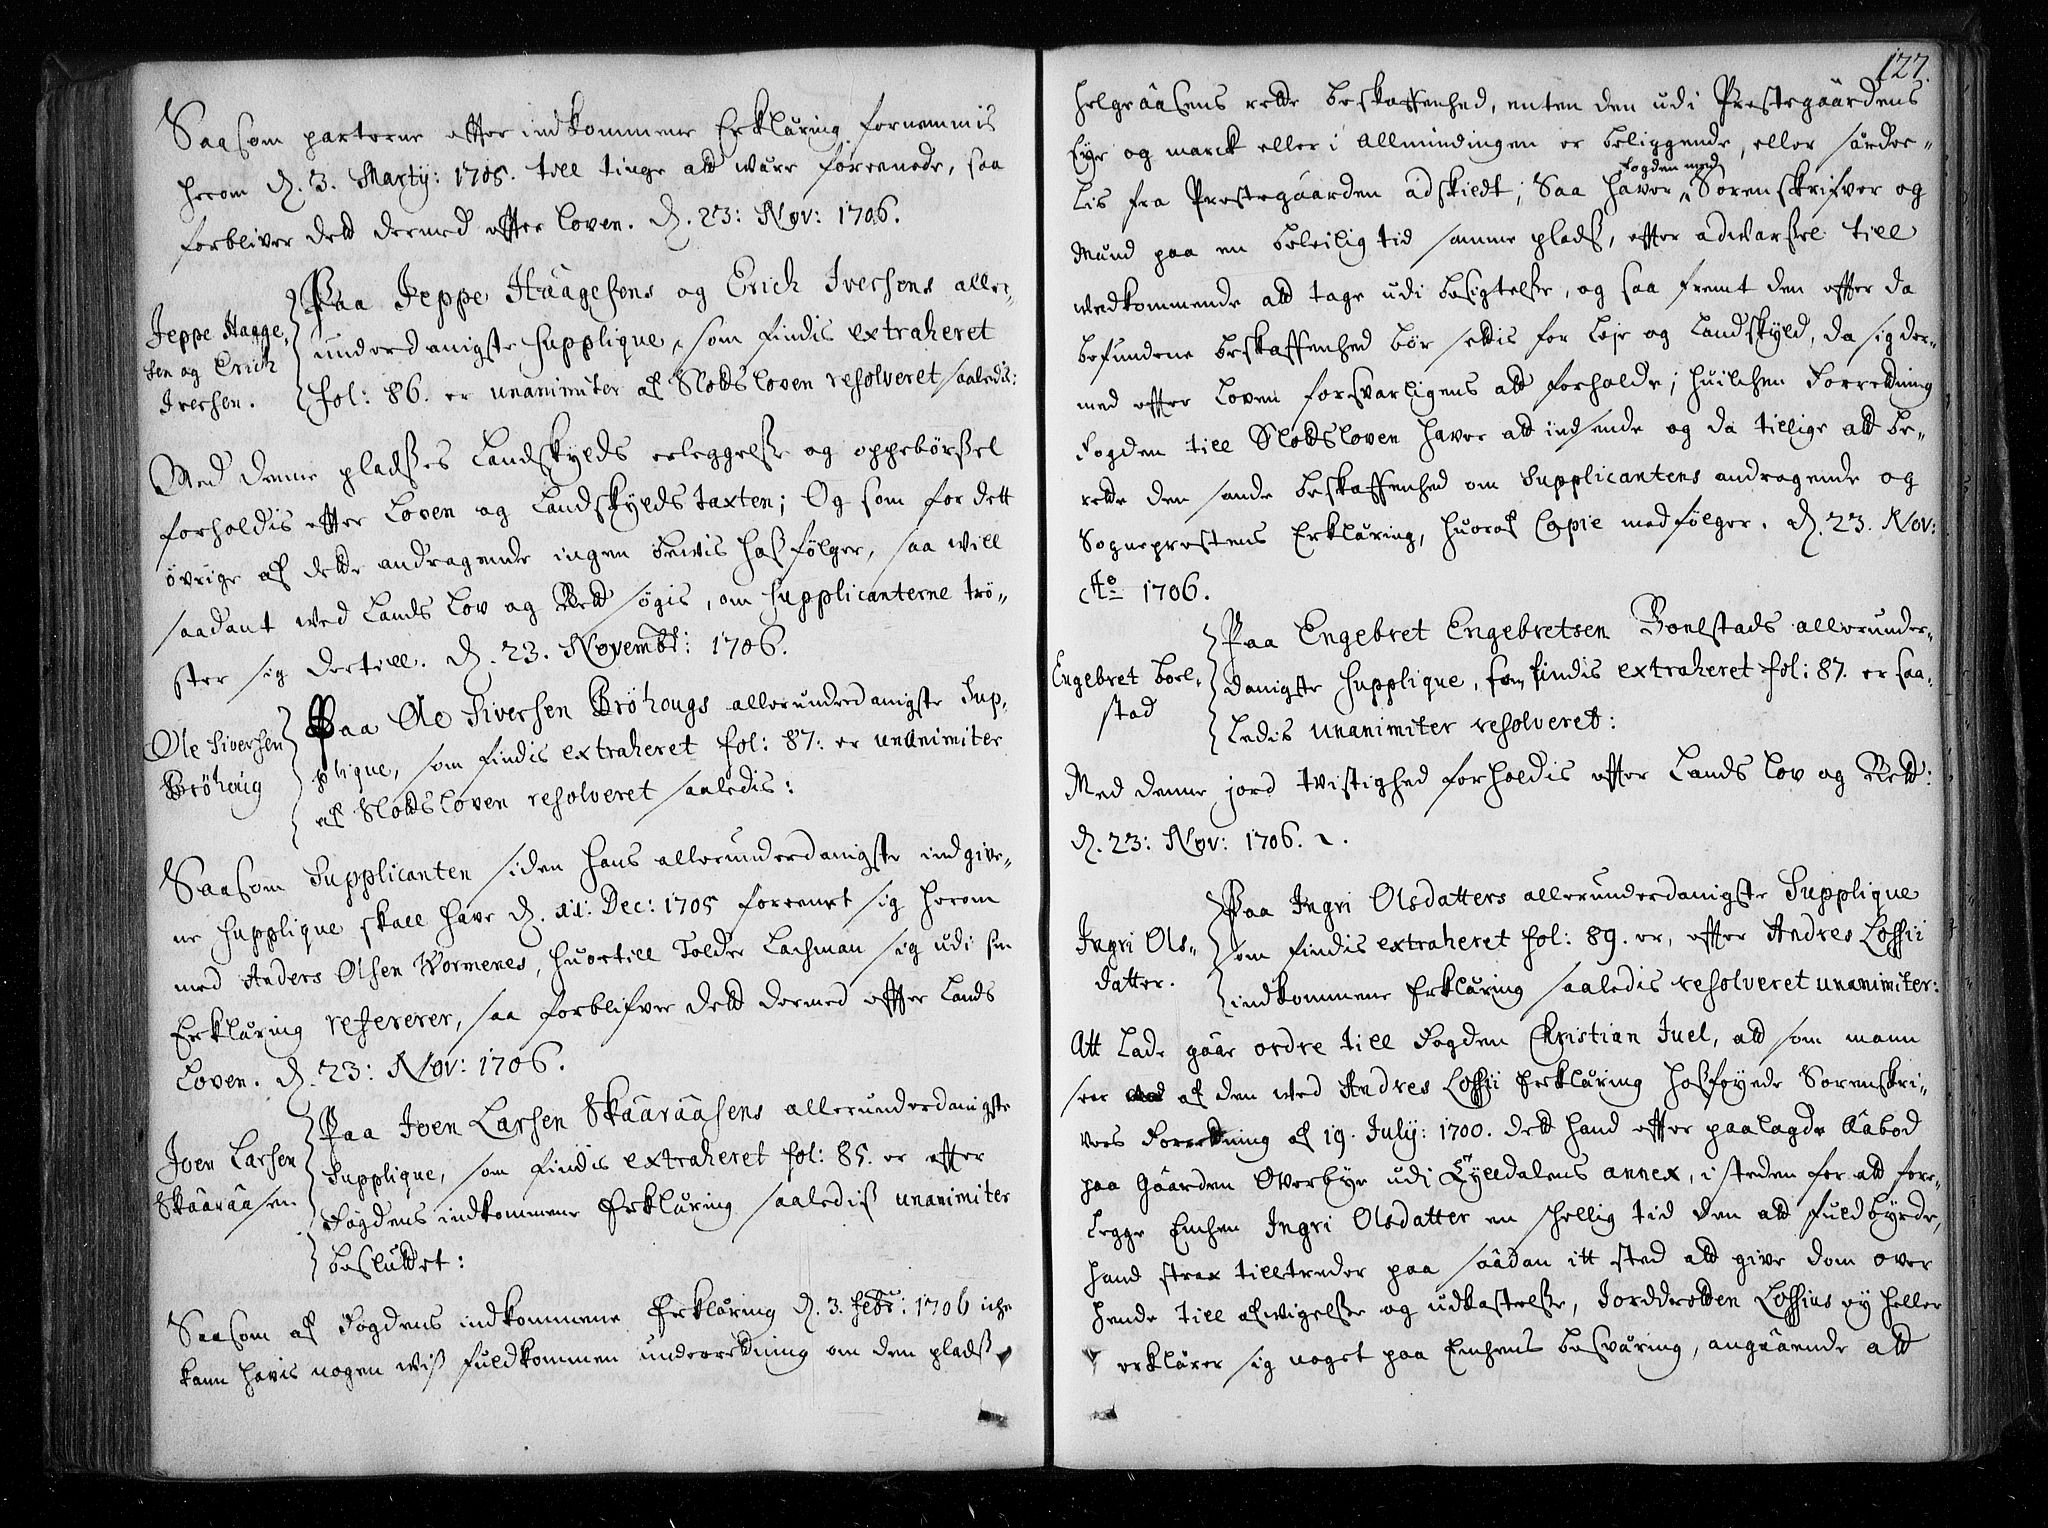 Saasom parterne effter indkommene Erklæring fornemmis
herom d. 3. Martij: 1705. till tinge att være foreenede, saa
forbliver dett dermed effter loven. d. 23: Nov: 1706.
Jeppe Haage-
sen og Erich
Iversen.
Paa Jeppe Haagesens og Erich Iversens aller-
underdanigste Supplique, som findis extraheret
fol: 86. er unanimiter af Slottsloven resolveret saaledis:
Med denne pladses Landskylds erleggelse og oppebörsel
forholdis effter Loven og Landskylds taxten; Og som for dett
øvrige af dette andragende ingen bewis hosfølger, saa will
saadant wed Lands Lov og Rett søgis, om supplicanterne trö-
ster sig dertill. d. 23. Novembr: 1706.
Ole Siversen
Bröhoug
Paa Ole Siversen Bröhougs allerunderdanigste Sup-
plique, som findis extraheret fol: 87: er unanimiter
af Slottsloven resolveret saaledis:
Saasom Supplicanten siden hans allerunderdanigste indgive-
ne Supplique skall have d. 11: Dec: 1705 foreenet sig herom
med Anders Olsen Wormenes, huortill Tolder Lachman sig udi sin
Erklæring refererer, saa forblifver dett dermed effter Lands
Loven. d. 23: Nov: 1706.
Joen Larsen
Skaaraasen
Paa Joen Larsen Skaaraasens allerunderdanigste
Supplique, som findis extraheret fol: 85. er effter
Fogdens indkommene Erklæring saalediß unanimiter
besluttet:
Saasom af Fogdens indkommene Erklæring d. 3. Febr: 1706 iche
kann havis nogen wiß fuldkommen underretning om den pladß
127.
Helgeraasens rette beskaffenhed, enten den udi Prestegaardens
Eye og marck eller i Allmindingen er beliggende, eller særde-
lis fra Prestegaarden adskildt; Saa haver Fogden med Sorenskrifver og
Mænd paa en beleilig tid samme pladß, effter adwarsel till
wedkommende att tage udi besigtelse, og saa fremt den effter da
befundene beskaffenhed bör settis for Leje og Landskyld, da sig der-
med effter Loven forsvarligens att forholde; huilchen Forretning
Fogden till Slottsloven haver att indsende og da tillige att be-
rette den sande beskaffenhed om Supplicantens andragende og
Sogneprestens Erklæring, huoraf Copie medfølger. d. 23. Nov:
Ao 1706.
Engebret Boel-
stad
Paa Engebret Engebretsen Boelstads allerunder-
danigste Supplique, som findis extraheret fol: 87. er saa-
ledis unanimiter resolveret:
Med denne jord twistighed forholdis effter Lands Lov og Rett:
d. 23: Nov: 1706.
Ingri Ols-
datter.
Paa Ingri Olsdatters allerunderdanigste Supplique
som findis extraheret fol: 89. er, effter Andres Lossii
indkommene Erklæring saaledis resolveret unanimiter:
Att lade gaae ordre till Fogden Christian Juel, att som mann
seer af den wed Andres Lossii Erklæring hosføyede Sorenskri-
vers Forretning af 19. July: 1700. dett hand effter paalagde Aabod
paa Gaarden Overbye udi Tylldalens annex, i steden for att fore-
legge Enchen Ingri Olsdatter en schellig tid den att fuldbyrde,
hand strax tilltreder paa saadan itt sted att give dom over
hende till afwigelse og udkastelse, Jorddrotten Lossius ey heller
erklærer sig noget paa Enchens besværing, angaaende att